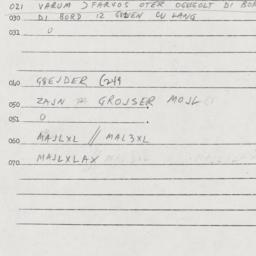 021 VARUM > FARVOS OTER DEUGOLT DI BOR
030 DI BORD IZ GEVEN CU LANG
032 0
040 GBEJDER G249
050 ZAJN GROJSER MOJL
051 0
060 MAJLXL // MAL3XL
070 MAJLXLAX